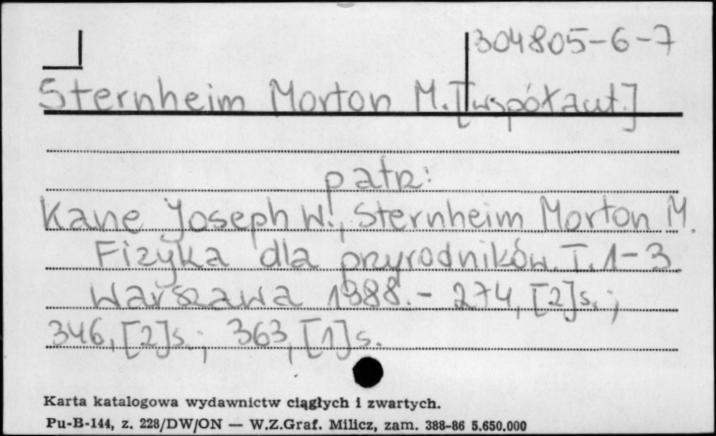 304805-6-7
Sternheim Morton M. [współaut.]
patrz:
Kane Joseph W., Sternheim Morton M.
Fizyka dla przyrodników. T. 1-3
Warszawa 1988. - 274, [2]s. ;
346, [2]s. ; 363, [1]s.
Karta katalogowa wydawnictw ciągłych i zwartych.
Pu-B-144, z. 228/DW/ON — W.Z.Graf. Milicz, zam. 388-86 5.650.000